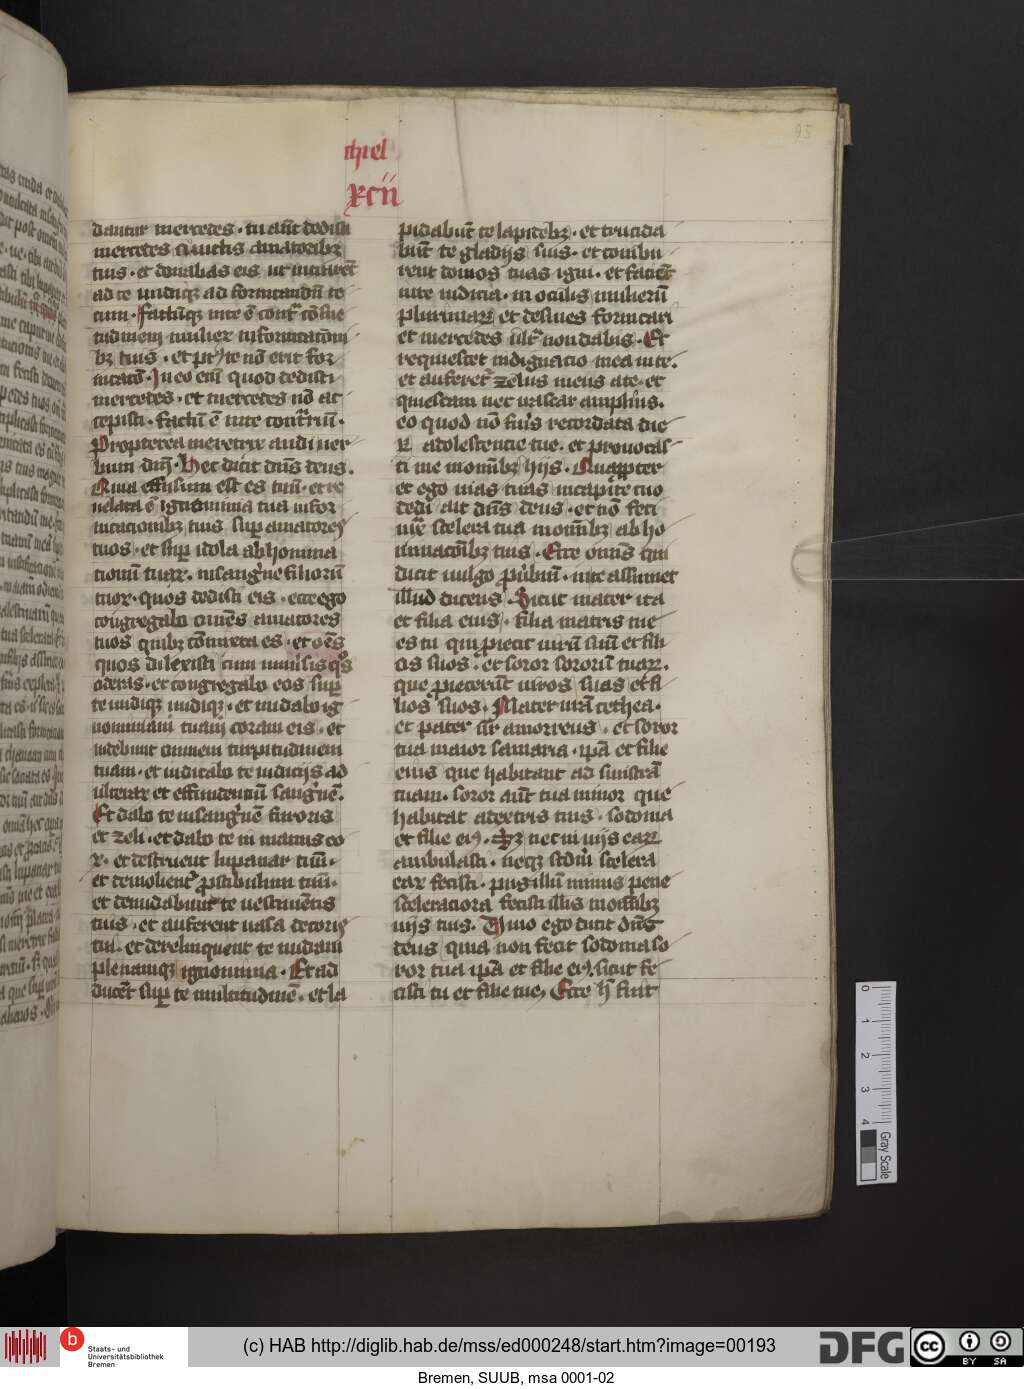 95
chiel
xcii
dantur mercedes · tu aūt dedisti
mercedes cūctis amatoribꝫ
tuis · et donabas eis ut intrarēt
ad te undiqꝫ ad fornicandū te
cum · Factūqꝫ in te ē cont͛ cōsue
tudinem mulierꝝ in fornicatōni
bꝫ tuis · et p̄t te nō erit for
nicatō · In eo enī quod dedisti
mercedes · et mercedes nō ac
cepisti · factū ē in te cont͛riū ·
Propterea meretrix audi uer
bum dn̄i · Hec dicit dn̄s deus ·
Quia effusum est es tuū · et re
uelata ē ignominia tua in for
nicacionibꝫ tuis sup̄ amatores
tuos · et sup̄ idola abhomina
cionū tuaꝝ · in sangͥne filiorū
tuoꝝ · quos dedisti eis · ecce ego
congregabo omēs amatores
tuos quibꝫ cōmixta es · et oēs
quos dilexisti cum uniūsis qͦs
oderas · et congregabo eos sup̄
te undiqꝫ undiqꝫ · et nudabo ig
nominiam tuam coram eis · et
uidebunt omnem turpitudinem
tuam · et iudicabo te iudicijs ad
ulteraꝝ et effundentiū sangͥnē ·
Et dabo te in sangͥnē furoris
et zeli · et dabo te in manus eo
ꝝ · et destruent lupanar tuū ·
et demolient͛ ꝓstibulum tuū ·
et denudabunt te uestimētis
tuis · et auferent uasa decoris
tui · et derelinquent te nudam
plenamqꝫ ignominia · Et ad
ducēt sup̄ te multitudinē · et la
pidabūt te lapidebꝫ · et trucida
būt te gladijs suis · et combu
rent domos tuas igni · et faciēt
in te iudicia · in oculis mulierū
plurimaꝝ et desines fornicari
et mercedes ult͛ non dabis · Et
requiescet indignacio mea in te ·
et auferet͛ zelus meus a te · et
quiescam nec irascar amplius ·
eo quod nō fuis recordata die
ꝝ adolescencie tue · et prouocas
ti me in omībꝫ hijs · Quapp̄ter
et ego uias tuas in capite tuo
dedi ait dn̄s deus · et nō feci
iux͛ scelera tua in omībꝫ abho
minacōībꝫ tuis · Ecce omīs qui
dicit uulgo ꝓuerbiū · in te assumet
illud dicens · Sicut mater ita
et filia eius · filia matris tue
es tu que ꝓiecit uirū suū et fili
os suos · et soror sororū tuaꝝ ·
que ꝓiecerūt uiros suos et fi
lios suos · Mater ur̄a cethea ·
et pater ur̄ amorreus · et soror
tua maior samaria · ip̄a et filie
eius que habitant ad sinistrā
tuam · soror aūt tua minor que
habitat a dextris tuis · sodoma
et filie eiꝰ · Sꝫ nec in uijs eaꝝ
ambulasti · neqꝫ scdm̄ scelera
eaꝝ fecisti · pusillū minus pene
sceleraciora fecisti illis in omībꝫ
uijs tuis · Viuo ego dicit dn̄s
deus quia non fecit sodoma so
ror tua ip̄a et filie eiꝰ · sicut fe
cisti tu et filie tue · Ecce h̄ fuit
0 1 2 3 4
Gray Scale
b
Staats- und
Universitätsbibliothek
Bremen
(c) HAB http://diglib.hab.de/mss/ed000248/start.htm?image=00193
DFG
cc
BY SA
Bremen, SUUB, msa 0001-02